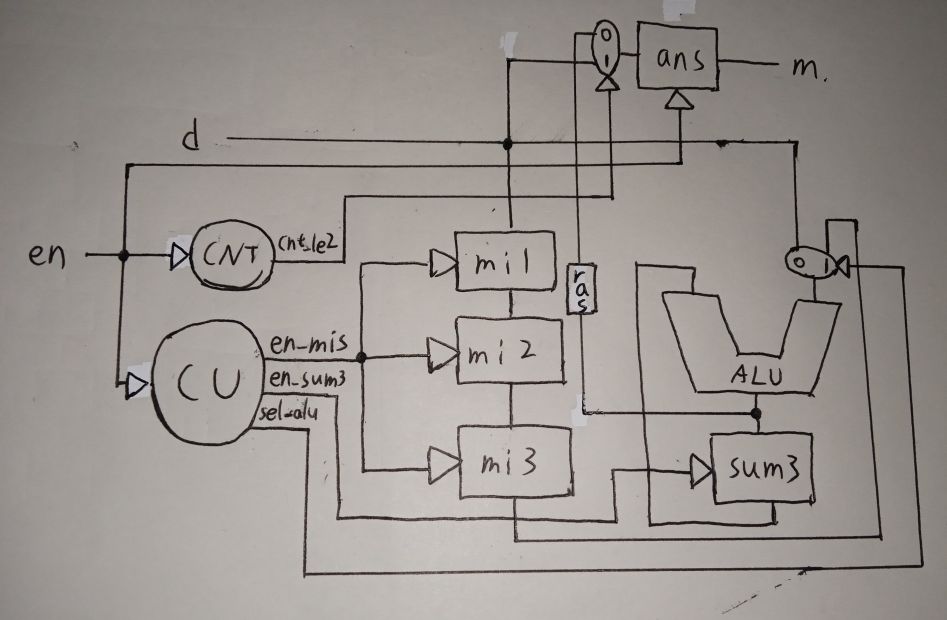 0
1
ans
m.
d
en
CNT
cnt_le2
mi1
ras
0 1
CU
en_mis
en_sum3
sel_alu
mi2
ALU
mi3
sum3